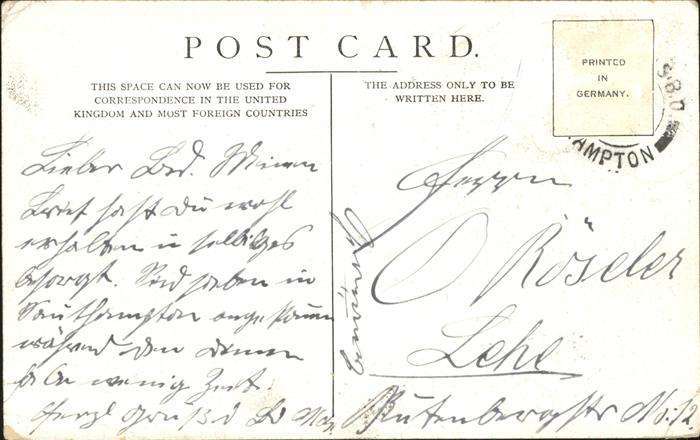 POST CARD.
THIS SPACE CAN NOW BE USED FOR
CORRESPONDENCE IN THE UNITED
KINGDOM AND MOST FOREIGN COUNTRIES
THE ADDRESS ONLY TO BE
WRITTEN HERE.
PRINTED
IN
GERMANY.
AMPTON
Lieber Brd. Meinen
Brief hast du wohl
erhalten u selbiges
besorgt. Sind haben in
Southampton angekommen
während den
wenig Zeit.
Herrn
O Röseler
Lehe
Rutenbergstr